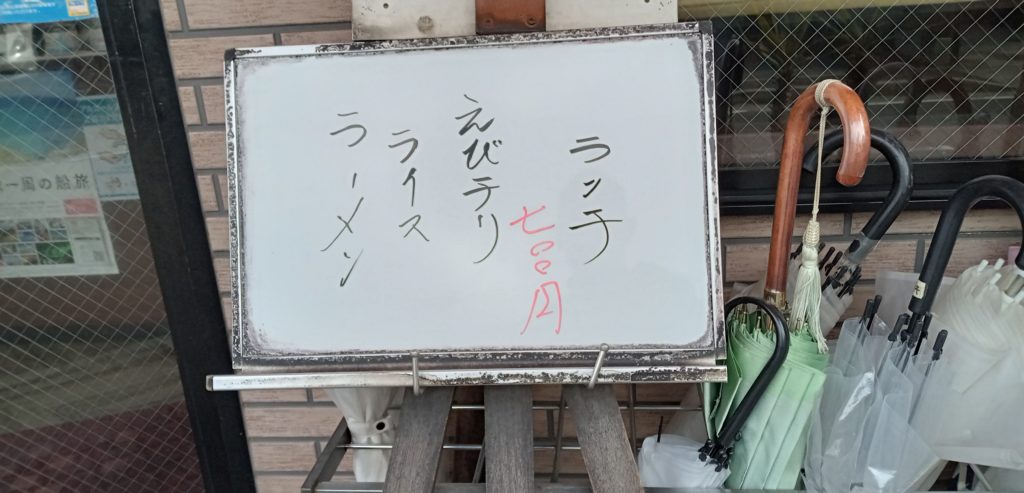 ランチ
七〇〇円
えびチリ
ライス
ラーメン
一周の船旅